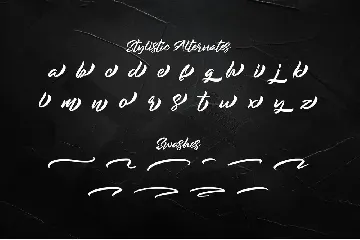 Stylistic Alternates
a b c d e f g h i j k
l m n o r s t u v w x y z
Swashes